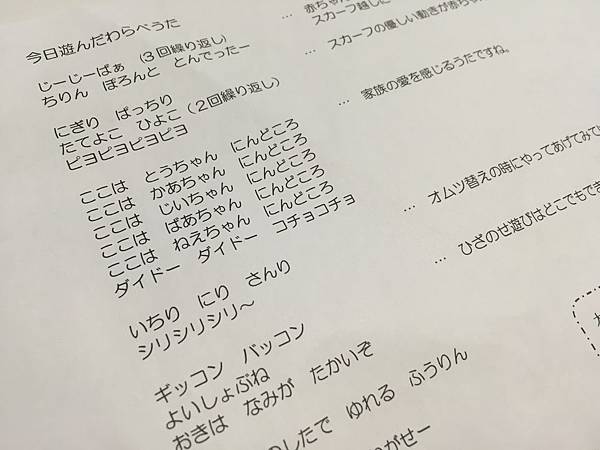 今日遊んだわらべうた
じーじーばぁ (3回繰り返し) … 赤ちゃん
スカーフ越しに
ちりん ぽろんと とんでったー … スカーフの優しい動きが赤ちゃ
にぎり ぱっちり
たてよこ ひよこ (2回繰り返し)
ピヨピヨピヨピヨ … 家族の愛を感じるうたですね。
ここは とうちゃん にんどころ
ここは かあちゃん にんどころ
ここは じいちゃん にんどころ
ここは ばあちゃん にんどころ
ここは ねえちゃん にんどころ
ダイドー ダイドー コチョコチョ … オムツ替えの時にやってあげてみて
いちり にり さんり … ひざのせ遊びはどこでもでき
シリシリシリ〜
ギッコン バッコン
よいしょぶね
おきは なみが たかいぞ
のしたで ゆれる ふうりん
がせー